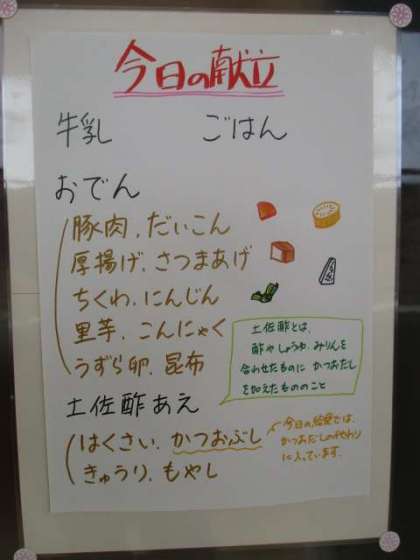 今日の献立
牛乳 ごはん
おでん
豚肉、だいこん
厚揚げ、さつまあげ
ちくわ、にんじん
里芋、こんにゃく
うずら卵、昆布
土佐酢とは、
酢やしょうゆ、みりんを
合わせたものに かつおだし
を加えたもののこと
土佐酢あえ
はくさい、かつおぶし
きゅうり、もやし
今日の給食では、
かつおだしの代わり
に入っています。